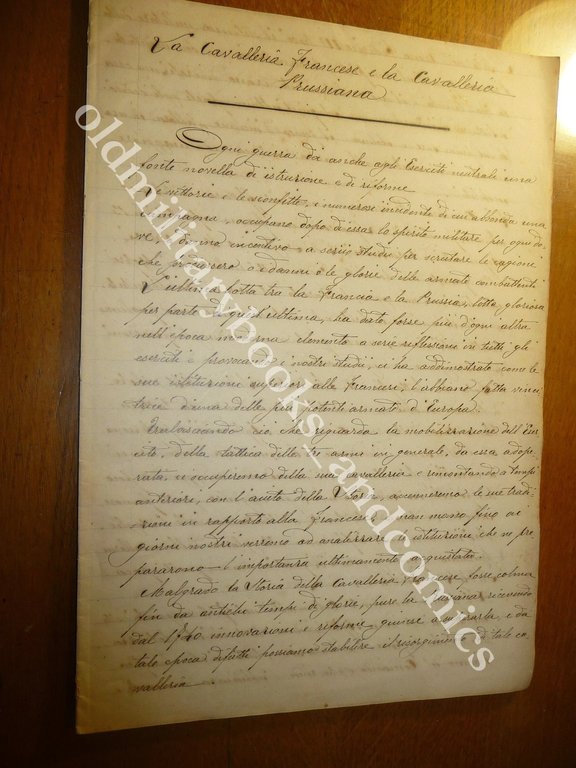 La Cavalleria Francese e la Cavalleria
Prussiana
Ogni guerra dà anche agli Eserciti neutrali una
fonte novella di istruzione e di riforme
Le vittorie e le sconfitte, i numerosi incidenti di cui abbonda una
campagna, occupano dopo di essa lo spirito militare per ogni do
ve, e danno incentivo a serii studii per scrutare le cagioni
che produssero o i danni o le glorie delle armate combattenti
L'ultima lotta tra la Francia e la Prussia, lotta gloriosa
per parte di quest'ultima, ha dato forse più d'ogni altra
nell'epoca moderna elemento a serie riflessioni in tutti gli
eserciti e provocando i nostri studii, ci ha addimostrato come le
sue istituzioni superiori alle Francesi, l'abbiano fatta vinci
trice d'una delle più potenti armate d'Europa.
Tralasciando ciò che riguarda la mobilizzazione dell'Eser
cito, della tattica delle tre armi in generale, da essa adope
rata, ci occuperemo della sua cavalleria e rimontando a tempi
anteriori, con l'aiuto della Storia, accenneremo le sue tradi
zioni in rapporto alla Francese, e man mano fino ai
giorni nostri verremo ad analizzare le istituzioni che ne pre
pararono l'importanza ultimamente acquistata.
Malgrado la Storia della Cavalleria Francese fosse colma
fin da antichi tempi di glorie, pure la Prussiana ricevendo
dal 1740 innovazioni e riforme giunse a superarla, e da
tale epoca difatti possiamo stabilire il risorgimento di tale ca
valleria.
oldmilitarybooks_andcomics